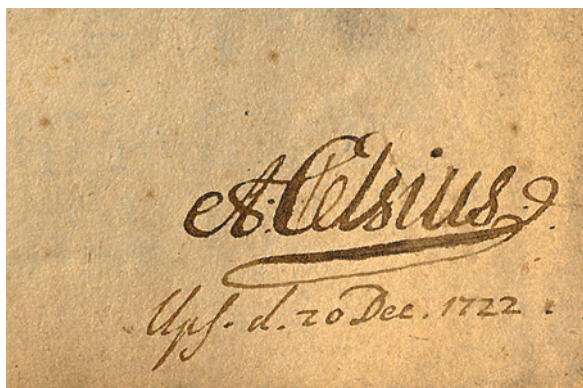 A. Celsius.
Ups. d. 20 Dec. 1722.